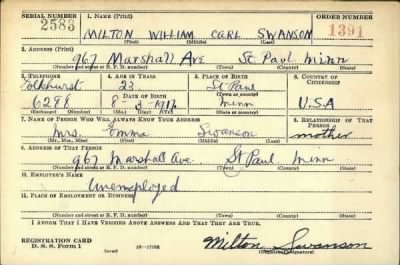 SERIAL NUMBER 1. NAME (Print) ORDER NUMBER
2583 MILTON WILLIAM CARL SWANSON 1391
2. ADDRESS (Print)
967 Marshall Ave St. Paul Minn
(Number and street or R. F. D. number) (Town) (County) (State)
3. TELEPHONE 4. AGE IN YEARS 5. PLACE OF BIRTH 6. COUNTRY OF CITIZENSHIP
23 St Paul
DATE OF BIRTH (Town or county)
6288 Minn U.S.A
(Exchange) (Number) (Mo.) (Day) (Yr.) (State or country)
7. NAME OF PERSON WHO WILL ALWAYS KNOW YOUR ADDRESS 8. RELATIONSHIP OF THAT PERSON
Mrs. Emma Swanson mother
(Mr., Mrs., Miss) (First) (Middle) (Last)
9. ADDRESS OF THAT PERSON
967 Marshall Ave. St Paul Minn
(Number and street or R. F. D. number) (Town) (County) (State)
10. EMPLOYER'S NAME
Unemployed
11. PLACE OF EMPLOYMENT OR BUSINESS
(Number and street or R. F. D. number) (Town) (County) (State)
I AFFIRM THAT I HAVE VERIFIED ABOVE ANSWERS AND THAT THEY ARE TRUE.
REGISTRATION CARD
D. S. S. Form 1
Milton Swanson
(Registrant's signature)